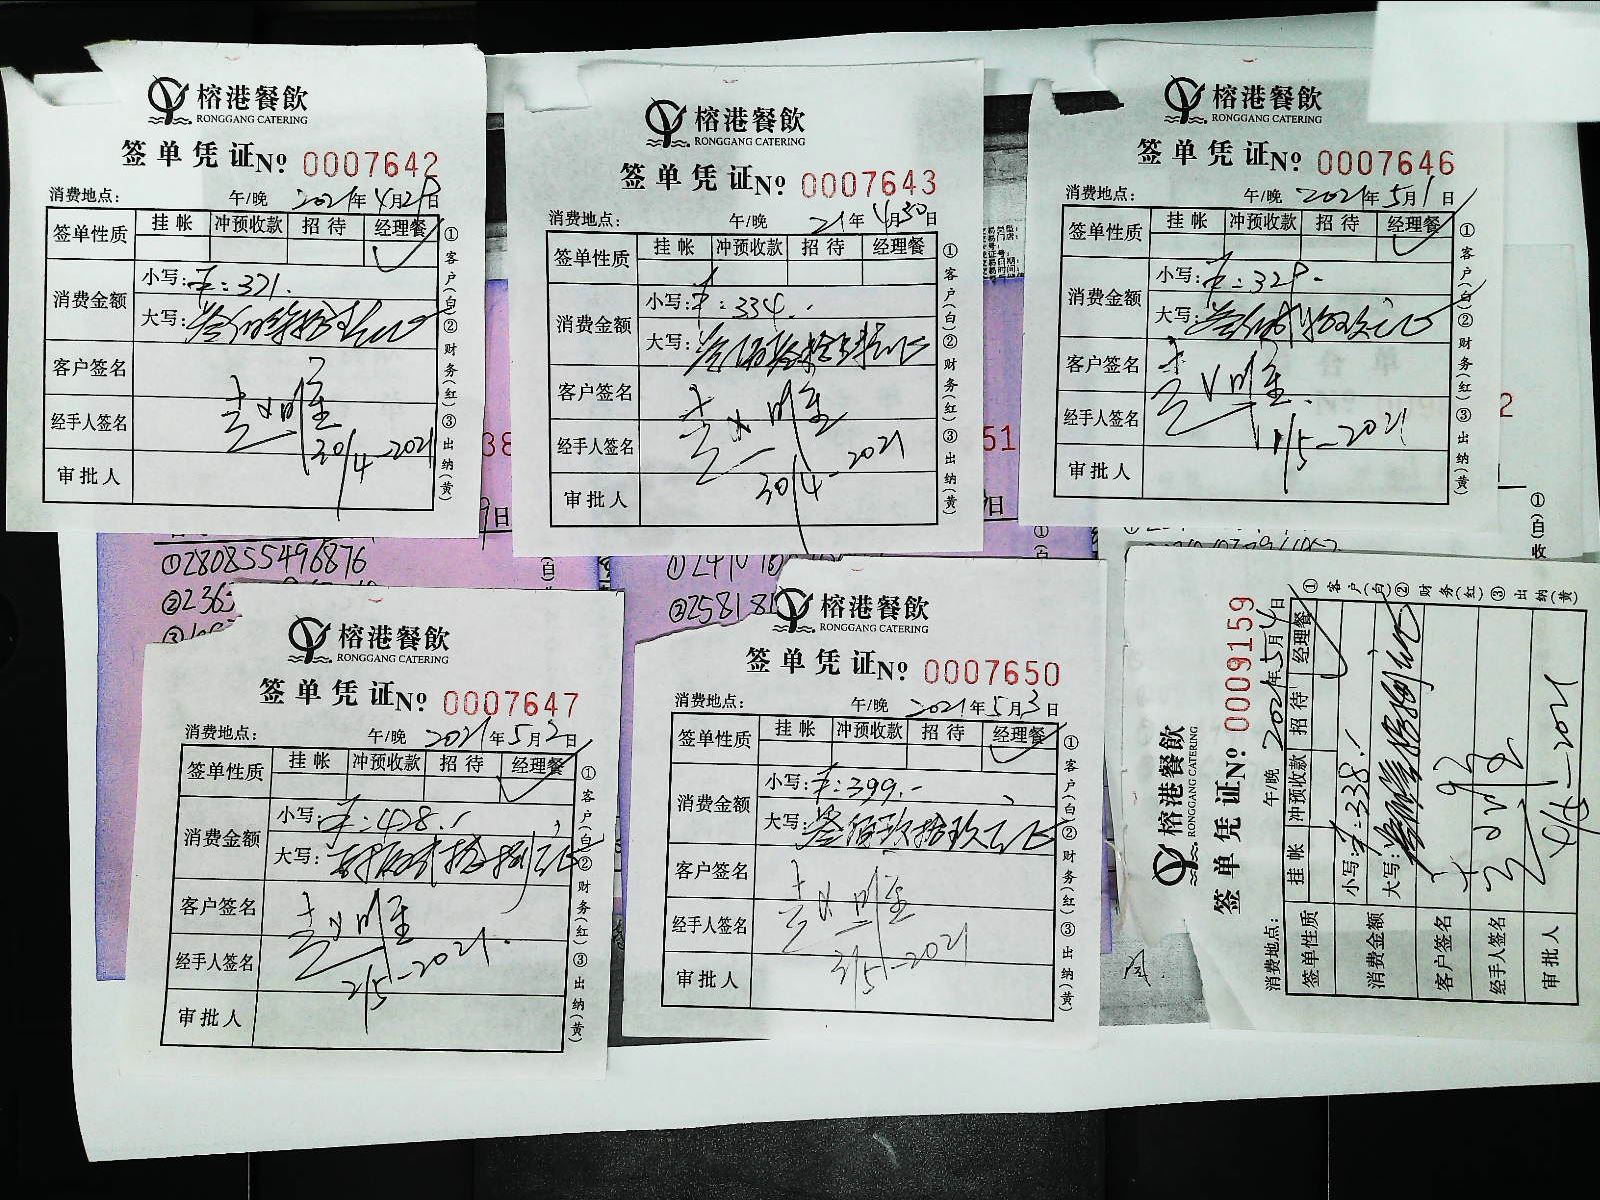 榕港餐飲
RONGGANG CATERING
签单凭证№ 0007642
消费地点： 午/晚 2021年4月29日
签单性质 挂帐 冲预收款 招待 经理餐
消费金额 小写：¥:371.
大写：
客户签名
经手人签名
30/4-2021
审批人
①客户(白)②财务(红)③出纳(黄)
榕港餐飲
RONGGANG CATERING
签单凭证№ 0007643
消费地点： 午/晚 21年4月30日
签单性质 挂帐 冲预收款 招待 经理餐
消费金额 小写：¥:334.-
大写：
客户签名
经手人签名
30/4-2021
审批人
①客户(白)②财务(红)③出纳(黄)
榕港餐飲
RONGGANG CATERING
签单凭证№ 0007646
消费地点： 午/晚 2021年5月1日
签单性质 挂帐 冲预收款 招待 经理餐
消费金额 小写：¥:329.-
大写：叁佰贰拾玖元正
客户签名
经手人签名
1/5-2021
审批人
①客户(白)②财务(红)③出纳(黄)
38
51
2
①280855496876
②236
①2410
②258181
榕港餐飲
RONGGANG CATERING
签单凭证№ 0007647
消费地点： 午/晚 2021年5月2日
签单性质 挂帐 冲预收款 招待 经理餐
消费金额 小写：¥:428.-
大写：肆佰贰拾捌元正
客户签名
经手人签名
2/5-2021.
审批人
①客户(白)②财务(红)③出纳(黄)
榕港餐飲
RONGGANG CATERING
签单凭证№ 0007650
消费地点： 午/晚 2021年5月3日
签单性质 挂帐 冲预收款 招待 经理餐
消费金额 小写：¥:399.-
大写：叁佰玖拾玖元正
客户签名
经手人签名
3/5-2021
审批人
①客户(白)②财务(红)③出纳(黄)
榕港餐飲
RONGGANG CATERING
签单凭证№ 0009159
消费地点： 午/晚 2021年5月4日
签单性质 挂帐 冲预收款 招待 经理餐
消费金额 小写：¥:338.-
大写：
客户签名
经手人签名
4/5-2021
审批人
①客户(白)②财务(红)③出纳(黄)